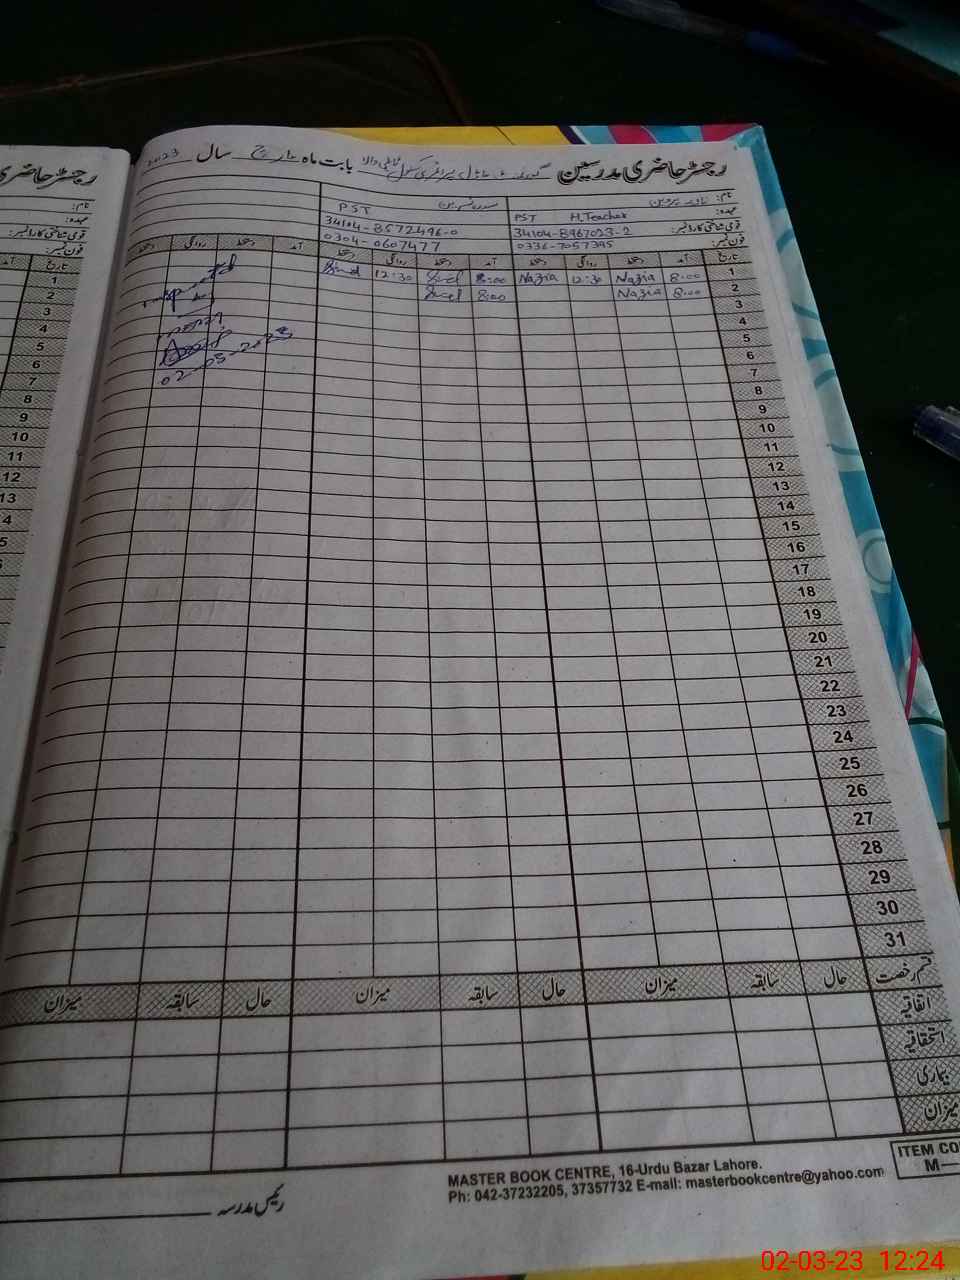 رجسٹر حاضری مدرسین گورنمنٹ ماڈل پرائمری سکول ٹاہلی والا بابت ماہ مارچ سال 2023
نام: نازیہ پروین
عہدہ: PST H.Teacher PST
قومی شناختی کارڈ نمبر: 34104-8967023-2 34104-8572496-0
فون نمبر: 0336-7057395 0304-0607477
تاریخ آمد دستخط روانگی دستخط آمد دستخط روانگی دستخط آمد دستخط روانگی دستخط
1 8:00 Nazia 12:30 Nazia 8:00 12:30
2 8:00 Nazia 8:00
3
4
5
6
7
8
9
10
11
12
13
14
15
16
17
18
19
20
21
22
23
24
25
26
27
28
29
30
31
قسم رخصت حال سابقہ میزان حال سابقہ میزان حال سابقہ میزان
اتفاقیہ
استحقاقیہ
بیماری
میزان
رئیس مدرسہ
MASTER BOOK CENTRE, 16-Urdu Bazar Lahore.
Ph: 042-37232205, 37357732 E-mail: masterbookcentre@yahoo.com
ITEM CO
M—
رجسٹر حاضری
نام:
عہدہ:
قومی شناختی کارڈ نمبر:
فون نمبر:
تاریخ
1
2
3
4
5
6
7
8
9
10
11
12
13
02-03-23 12:24